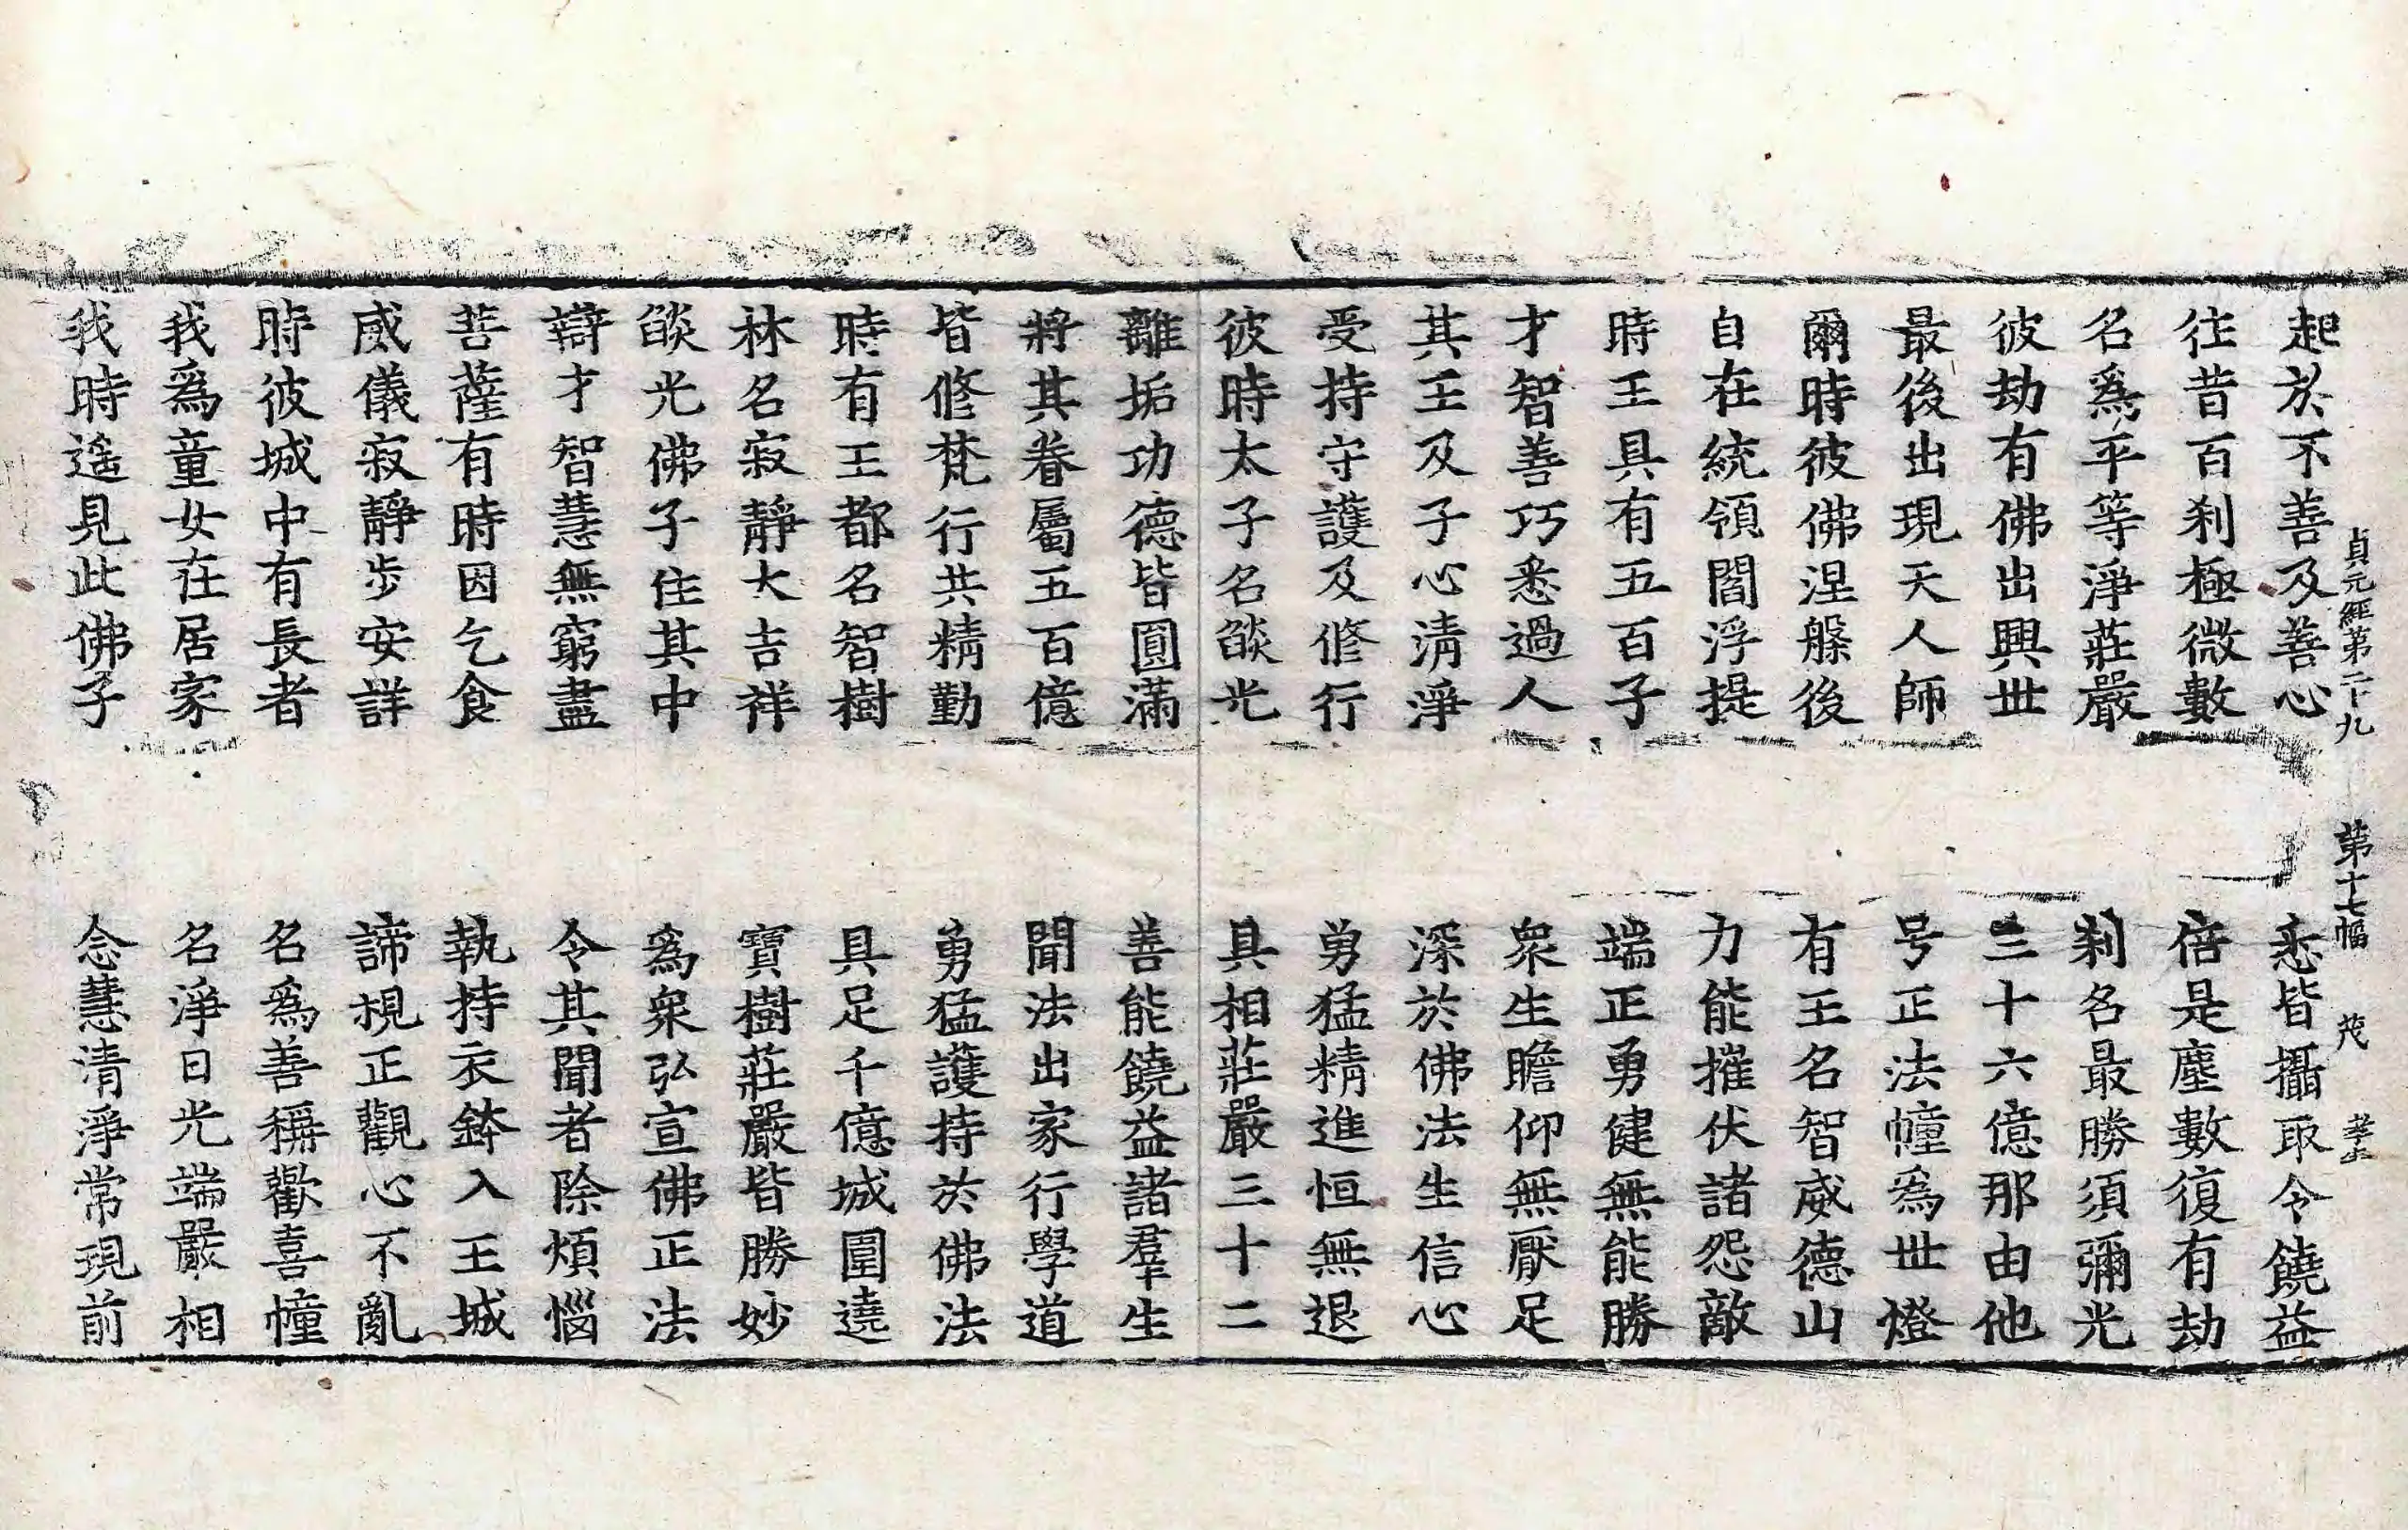 貞元經第二十九 第十七幅 茂
起於不善及善心 悉皆攝取令饒益
往昔百刹極微數 倍是塵數復有劫
名爲平等淨莊嚴 刹名最勝須彌光
彼劫有佛出興世 三十六億那由他
最後出現天人師 号正法幢爲世燈
爾時彼佛涅槃後 有王名智威德山
自在統領閻浮提 力能摧伏諸怨敵
時王具有五百子 端正勇健無能勝
才智善巧悉過人 衆生瞻仰無厭足
其王及子心淸淨 深於佛法生信心
受持守護及修行 勇猛精進恒無退
彼時太子名燄光 具相莊嚴三十二
離垢功德皆圓滿 善能饒益諸羣生
將其眷屬五百億 聞法出家行學道
皆修梵行共精勤 勇猛護持於佛法
時有王都名智樹 具足千億城圍遶
林名寂靜大吉祥 寶樹莊嚴皆勝妙
燄光佛子住其中 爲衆弘宣佛正法
辯才智慧無窮盡 令其聞者除煩惱
菩薩有時因乞食 執持衣鉢入王城
威儀寂靜步安詳 諦視正觀心不亂
時彼城中有長者 名爲善稱歡喜幢
我爲童女在居家 名淨日光端嚴相
我時遙見此佛子 念慧清淨常現前